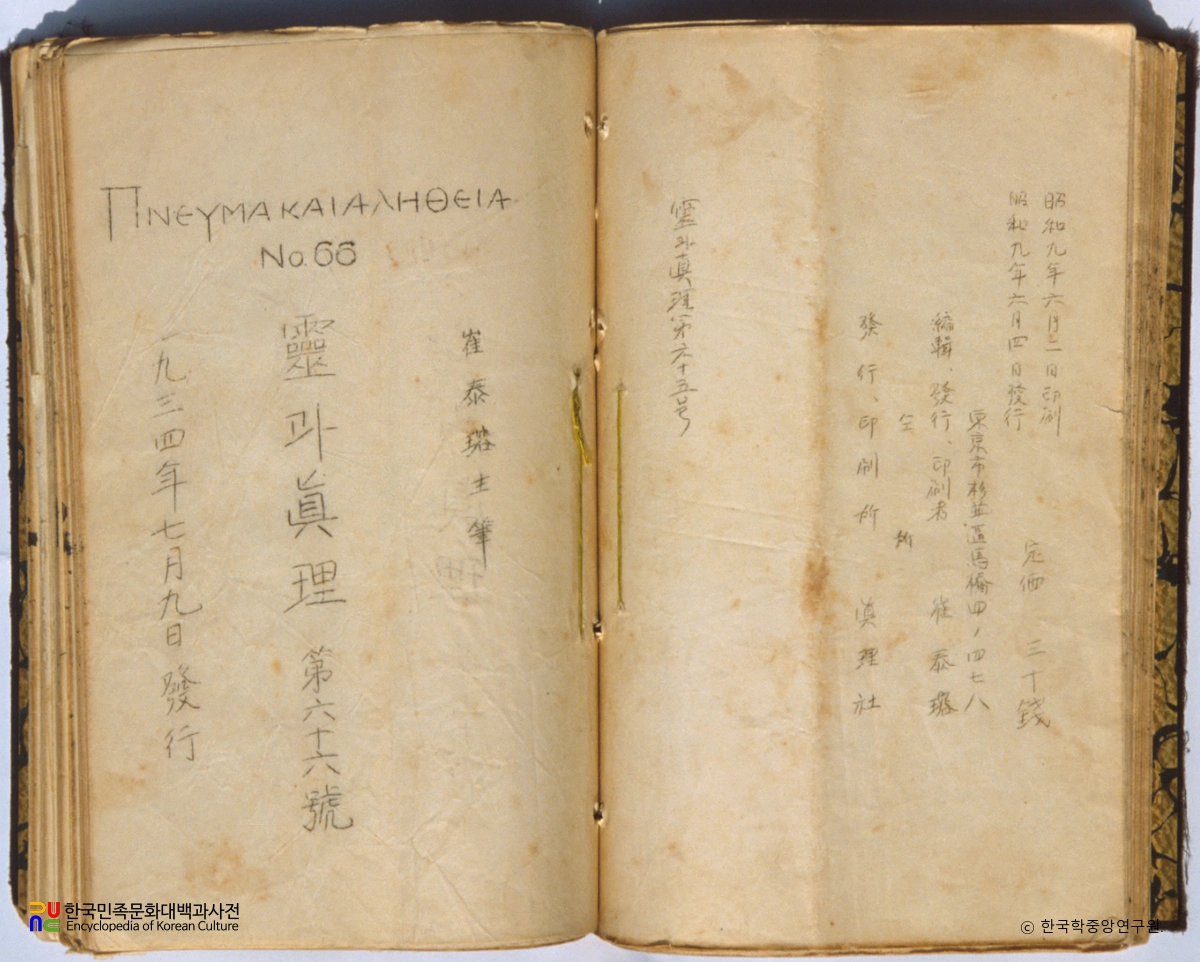 ΠΝΕΥΜΑ ΚΑΙ ΑΛΗΘΕΙΑ
No. 66
崔泰瑢主筆
靈과眞理 第六十六號
一九三四年七月九日發行
昭和九年六月二日印刷
昭和九年六月四日發行
定価 三十錢
東京市杉並區馬橋四ノ四七八
編輯、發行、印刷者 崔泰瑢
仝 所
發行、印刷所 眞理社
靈과眞理第六十五号
한국민족문화대백과사전
Encyclopedia of Korean Culture
ⓒ 한국학중앙연구원